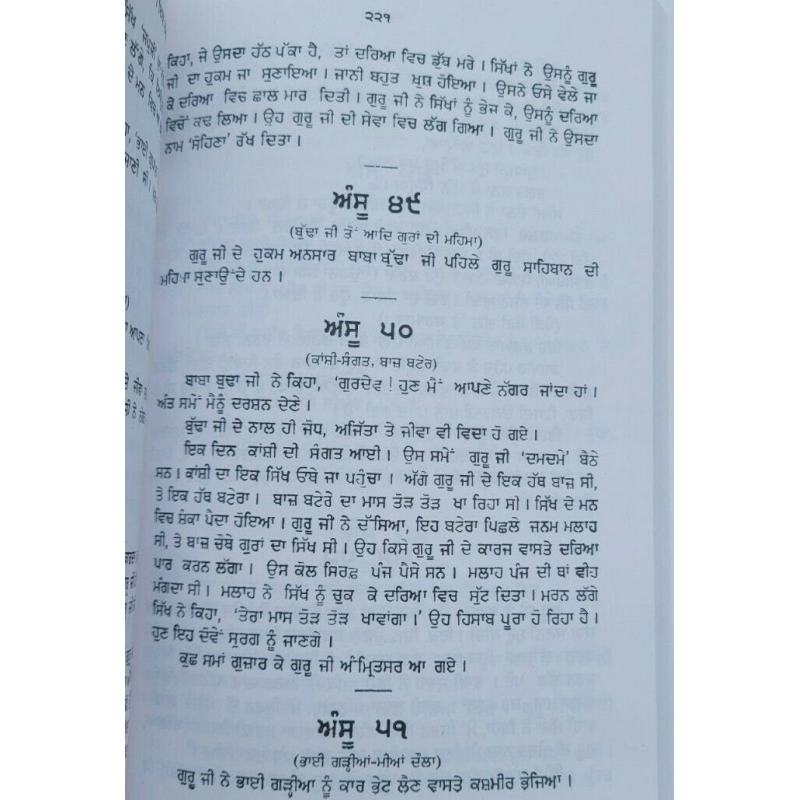 ੨੨੧
ਕਿਹਾ, ਜੇ ਉਸਦਾ ਹੱਠ ਪੱਕਾ ਹੈ, ਤਾਂ ਦਰਿਆ ਵਿਚ ਡੁੱਬ ਮਰੇ । ਸਿੱਖਾਂ ਨੇ ਉਸਨੂੰ ਗੁਰੂ
ਜੀ ਦਾ ਹੁਕਮ ਜਾ ਸੁਣਾਇਆ । ਜਾਨੀ ਬਹੁਤ ਖੁਸ਼ ਹੋਇਆ । ਉਸਨੇ ਓਸੇ ਵੇਲੇ ਜਾ
ਕੇ ਦਰਿਆ ਵਿਚ ਛਾਲ ਮਾਰ ਦਿਤੀ । ਗੁਰੂ ਜੀ ਨੇ ਸਿੱਖਾਂ ਨੂੰ ਭੇਜ ਕੇ, ਉਸਨੂੰ ਦਰਿਆ
ਵਿਚੋਂ ਕਢ ਲਿਆ । ਉਹ ਗੁਰੂ ਜੀ ਦੀ ਸੇਵਾ ਵਿਚ ਲੱਗ ਗਿਆ । ਗੁਰੂ ਜੀ ਨੇ ਉਸਦਾ
ਨਾਮ 'ਸੋਹਿਣਾ' ਰੱਖ ਦਿਤਾ ।
ਅੰਸੂ ੪੯
(ਬੁੱਢਾ ਜੀ ਤੋਂ ਆਦਿ ਗੁਰਾਂ ਦੀ ਮਹਿਮਾ)
ਗੁਰੂ ਜੀ ਦੇ ਹੁਕਮ ਅਨਸਾਰ ਬਾਬਾ ਬੁੱਢਾ ਜੀ ਪਹਿਲੇ ਗੁਰੂ ਸਾਹਿਬਾਨ ਦੀ
ਮਹਿਮਾ ਸੁਣਾਉਂਦੇ ਹਨ ।
ਅੰਸੂ ੫੦
(ਕਾਂਸ਼ੀ-ਸੰਗਤ, ਬਾਜ਼ ਬਟੇਰ)
ਬਾਬਾ ਬੁਢਾ ਜੀ ਨੇ ਕਿਹਾ, 'ਗੁਰਦੇਵ ! ਹੁਣ ਮੈਂ ਆਪਣੇ ਨੱਗਰ ਜਾਂਦਾ ਹਾਂ ।
ਅੰਤ ਸਮੇਂ ਮੈਨੂੰ ਦਰਸ਼ਨ ਦੇਣੇ ।
ਬੁੱਢਾ ਜੀ ਦੇ ਨਾਲ ਹੀ ਜੋਧ, ਅਜਿੱਤਾ ਤੇ ਜੀਵਾ ਵੀ ਵਿਦਾ ਹੋ ਗਏ ।
ਇਕ ਦਿਨ ਕਾਂਸ਼ੀ ਦੀ ਸੰਗਤ ਆਈ । ਉਸ ਸਮੇਂ ਗੁਰੂ ਜੀ 'ਦਮਦਮੇ' ਬੈਠੇ
ਸਨ । ਕਾਂਸ਼ੀ ਦਾ ਇਕ ਸਿੱਖ ਓਥੇ ਜਾ ਪਹੁੰਚਾ । ਅੱਗੇ ਗੁਰੂ ਜੀ ਦੇ ਇਕ ਹੱਥ ਬਾਜ਼ ਸੀ,
ਤੇ ਇਕ ਹੱਥ ਬਟੇਰਾ । ਬਾਜ਼ ਬਟੇਰੇ ਦਾ ਮਾਸ ਤੋੜ ਤੋੜ ਖਾ ਰਿਹਾ ਸੀ । ਸਿੱਖ ਦੇ ਮਨ
ਵਿਚ ਸ਼ੰਕਾ ਪੈਦਾ ਹੋਇਆ । ਗੁਰੂ ਜੀ ਨੇ ਦੱਸਿਆ, ਇਹ ਬਟੇਰਾ ਪਿਛਲੇ ਜਨਮ ਮਲਾਹ
ਸੀ, ਤੇ ਬਾਜ਼ ਚੌਥੇ ਗੁਰਾਂ ਦਾ ਸਿੱਖ ਸੀ । ਉਹ ਕਿਸੇ ਗੁਰੂ ਜੀ ਦੇ ਕਾਰਜ ਵਾਸਤੇ ਦਰਿਆ
ਪਾਰ ਕਰਨ ਲੱਗਾ । ਉਸ ਕੋਲ ਸਿਰਫ਼ ਪੰਜ ਪੈਸੇ ਸਨ । ਮਲਾਹ ਪੰਜ ਦੀ ਥਾਂ ਵੀਹ
ਮੰਗਦਾ ਸੀ । ਮਲਾਹ ਨੇ ਸਿੱਖ ਨੂੰ ਚੁਕ ਕੇ ਦਰਿਆ ਵਿਚ ਸੁੱਟ ਦਿਤਾ । ਮਰਨ ਲੱਗੇ
ਸਿੱਖ ਨੇ ਕਿਹਾ, 'ਤੇਰਾ ਮਾਸ ਤੋੜ ਤੋੜ ਖਾਵਾਂਗਾ ।' ਉਹ ਹਿਸਾਬ ਪੂਰਾ ਹੋ ਰਿਹਾ ਹੈ ।
ਹੁਣ ਇਹ ਦੋਵੇਂ ਸੁਰਗ ਨੂੰ ਜਾਣਗੇ ।
ਕੁਛ ਸਮਾਂ ਗੁਜ਼ਾਰ ਕੇ ਗੁਰੂ ਜੀ ਅੰਮ੍ਰਿਤਸਰ ਆ ਗਏ ।
ਅੰਸੂ ੫੧
(ਭਾਈ ਗੜ੍ਹੀਆਂ-ਮੀਆਂ ਦੌਲਾ)
ਗੁਰੂ ਜੀ ਨੇ ਭਾਈ ਗੜ੍ਹੀਆ ਨੂੰ ਕਾਰ ਭੇਟ ਲੈਣ ਵਾਸਤੇ ਕਸ਼ਮੀਰ ਭੇਜਿਆ ।